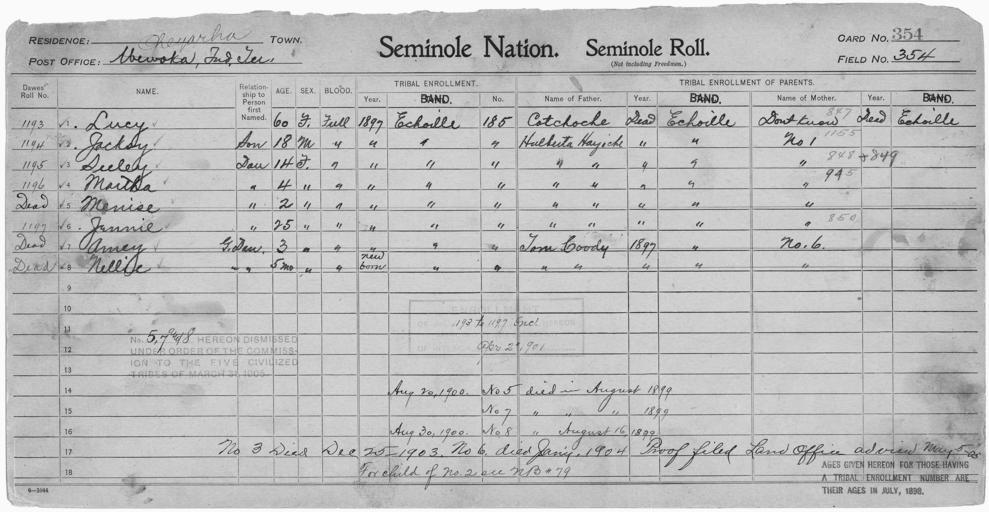 RESIDENCE: TOWN. Seminole Nation. Seminole Roll. CARD NO. 354
POST OFFICE: Wewoka, Ind. Ter. (Not including Freedmen.) FIELD NO. 354
TRIBAL ENROLLMENT. TRIBAL ENROLLMENT OF PARENTS.
Dawes' Roll No. NAME. Relationship to Person first Named. AGE. SEX. BLOOD. Year. BAND. No. Name of Father. Year. BAND. Name of Mother. Year. BAND.
1193 1 Lucy 60 F. Full 1897 Echoille 185 Cotchoche Dead Echoille Dont know Dead Echoille
1194 2 Jacksy Son 18 M " " " " Hulbutta Hayiche " " No 1 1155
1195 3 Seeley Dau 14 F. " " " " " " " " " 848 + 849
1196 4 Martha " 4 " " " " " " " " " " 945
Dead 5 Menise " 2 " " " " " " " " " "
1197 6 Jennie " 25 " " " " " " " " " " 850
Dead 7 Amey G. Dau. 3 " " " " " Tom Coody 1897 " No. 6.
Dead 8 Nellie " " 5 mo " " new born " " " " " " "
9
10
11
12
13
14
15
16
17
18
ENROLLMENT
OF HEREON
1193 to 1197 Incl
Apr 2, 1901
No. 5, 7 & 8 HEREON DISMISSED
UNDER ORDER OF THE COMMISSION
TO THE FIVE CIVILIZED
TRIBES OF MARCH 31, 1905.
Aug 30, 1900. No 5 died in August 1899
No 7 " " " 1899
Aug 30, 1900. No 8 " August 16, 1899
No 3 Died Dec 25 - 1903. No 6. died Jany, 1904 Proof filed Land Office advised May 5-05
For child of no. 2 see NB # 79
AGES GIVEN HEREON FOR THOSE HAVING
A TRIBAL ENROLLMENT NUMBER ARE
THEIR AGES IN JULY, 1898.